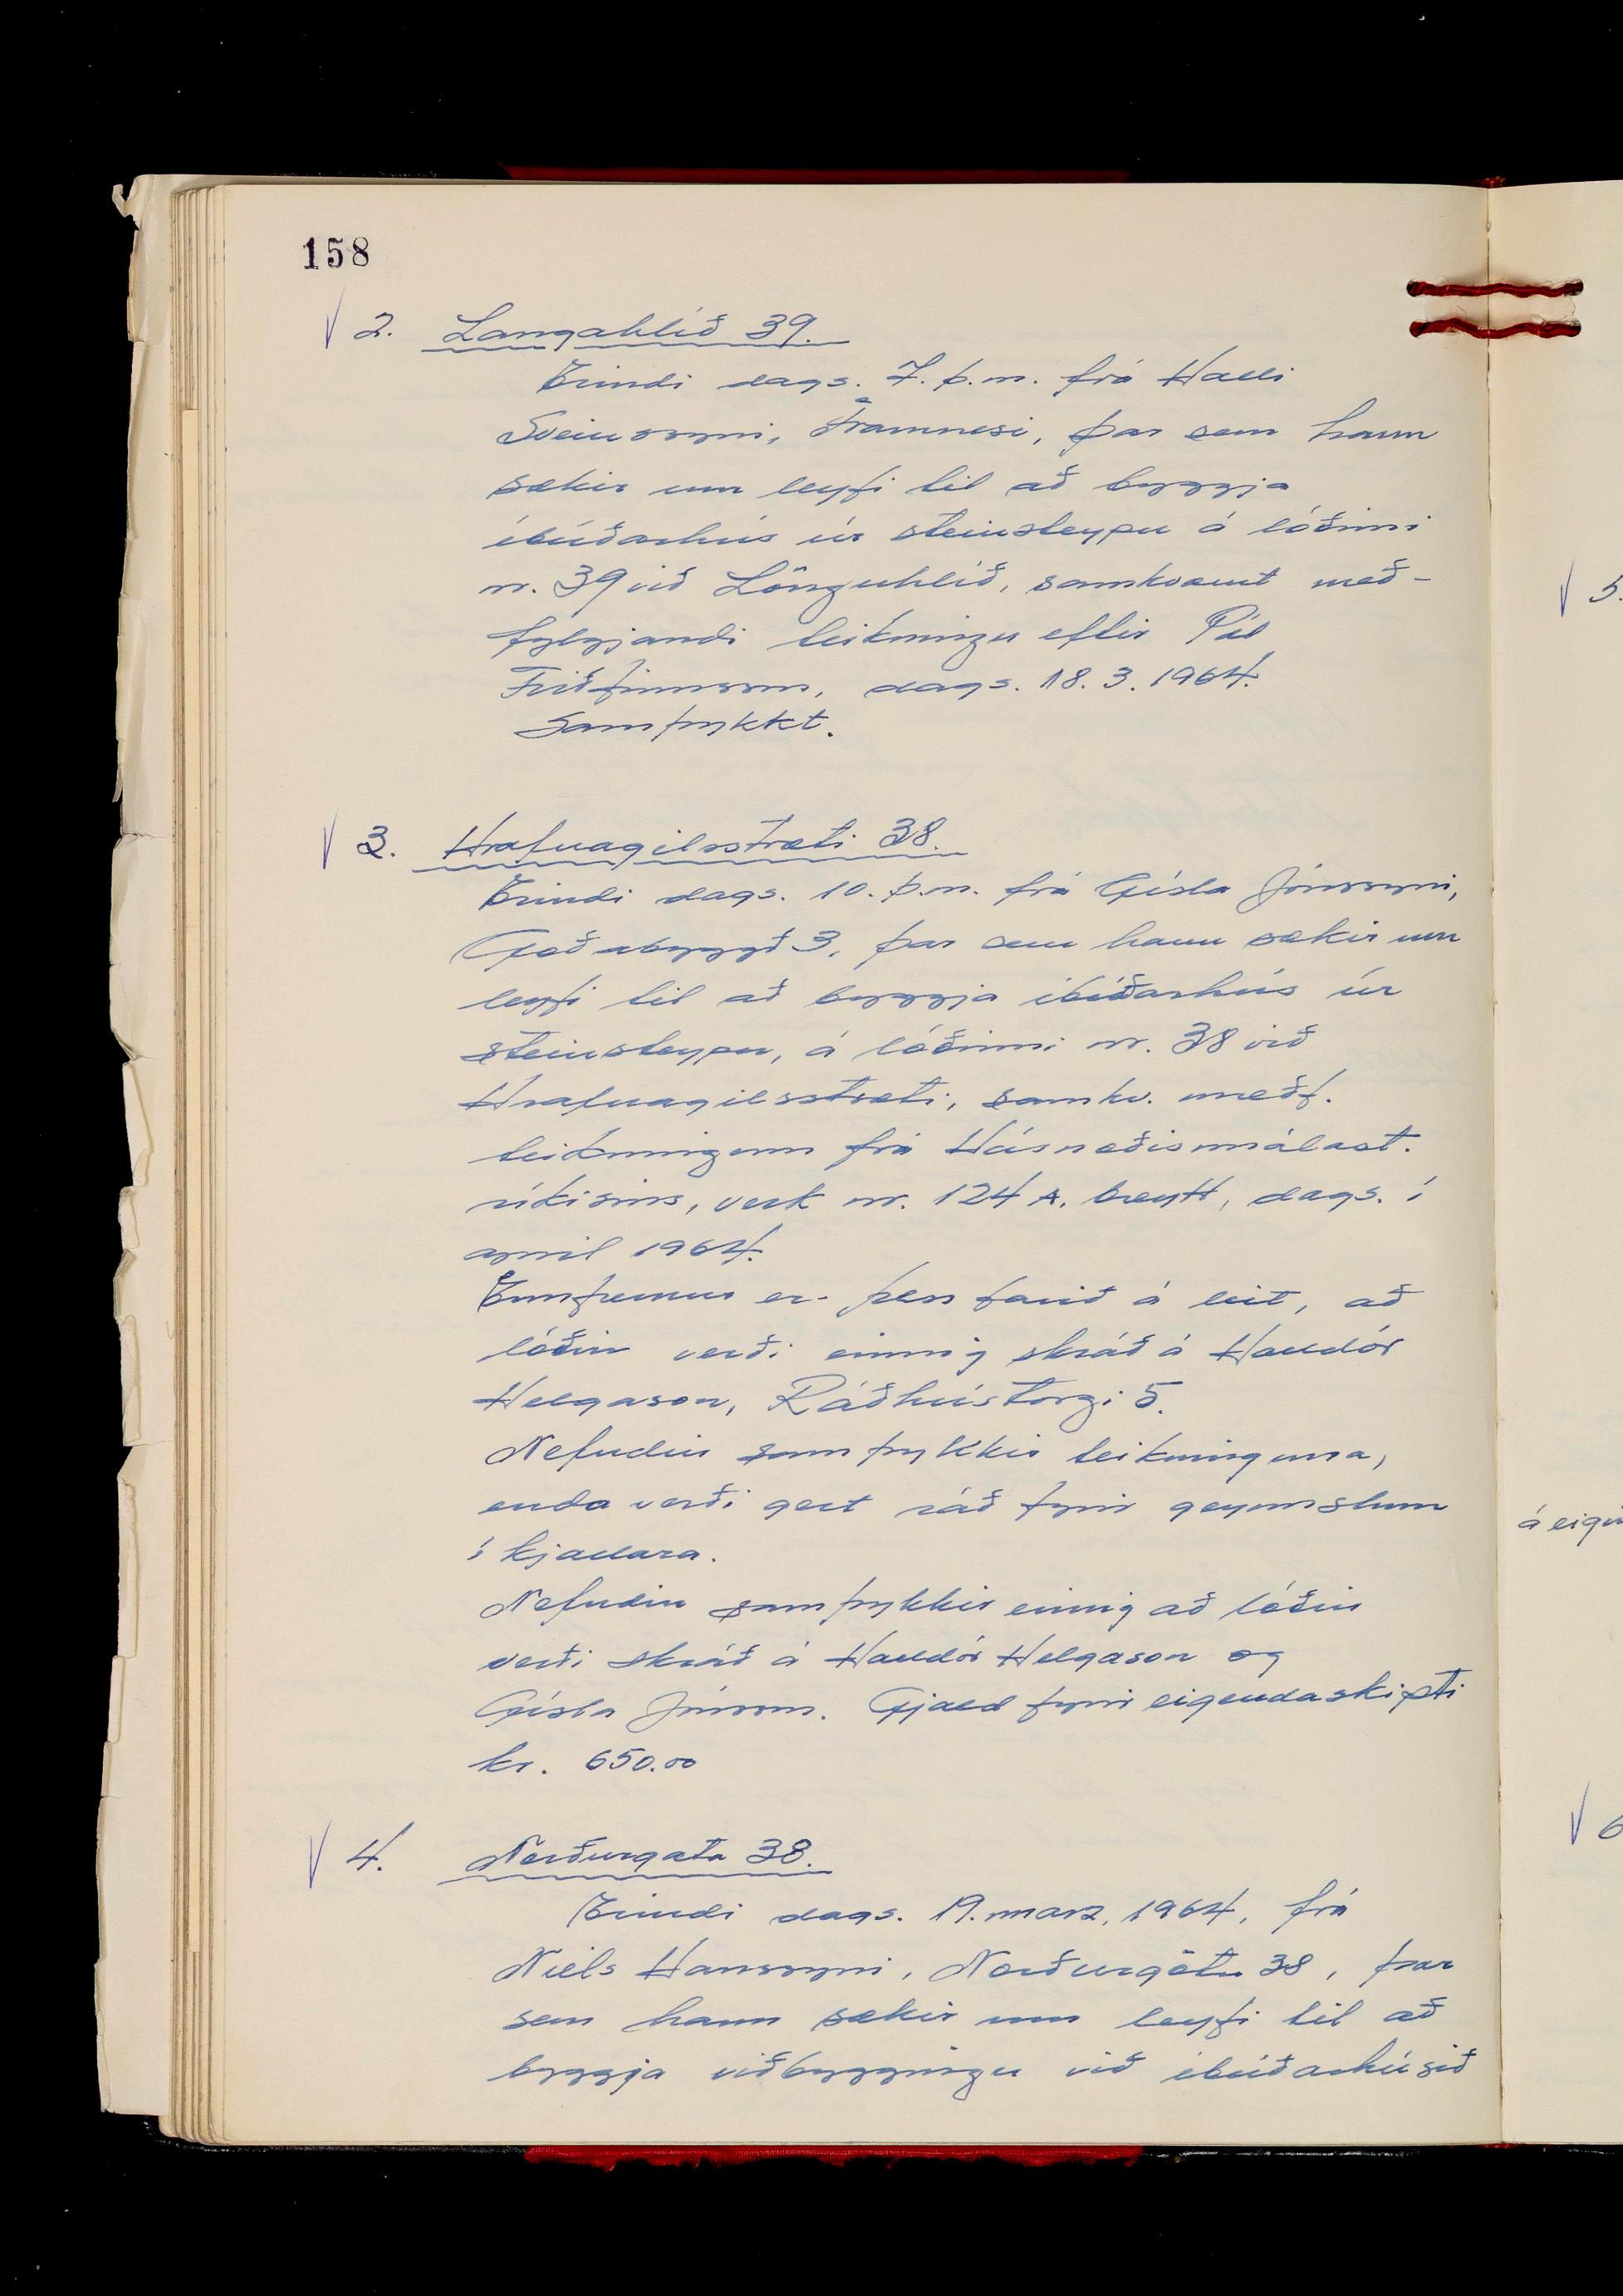 158
√ 2. Langahlíð 39.
Erindi dags. 7. þ.m. frá Halli
Sveinssyni, Framnesi, þar sem hann
sækir um leyfi til að byggja
íbúðarhús úr steinsteypu á lóðinni
nr. 39 við Lönguhlíð, samkvæmt með-
fylgjandi teikningu eftir Pál
Friðfinnsson, dags. 18.3.1964.
Samþykkt.
√ 3. Hrafnagilsstræti 38.
Erindi dags. 10. þ.m. frá Gísla Jónssyni,
Goðabyggð 3, þar sem hann sækir um
leyfi til að byggja íbúðarhús úr
steinsteypu, á lóðinni nr. 38 við
Hrafnagilsstræti, samkv. meðf.
teikningum frá Húsnæðismálast.
ríkisins, verk nr. 124 A, breytt, dags. í
apríl 1964.
Ennfremur er þess farið á leit, að
lóðin verði einnig skráð á Halldór
Helgason, Ráðhústorgi 5.
Nefndin samþykkir teikninguna,
enda verði gert ráð fyrir geymslum
í kjallara.
Nefndin samþykkir einnig að lóðin
verði skráð á Halldór Helgason og
Gísla Jónsson. Gjald fyrir eigendaskipti
kr. 650.00
√ 4. Norðurgata 38.
Erindi dags. 19. marz, 1964, frá
Níels Hanssyni, Norðurgötu 38, þar
sem hann sækir um leyfi til að
byggja viðbyggingu við íbúðarhúsið
√ 5.
á eigu
√ 6